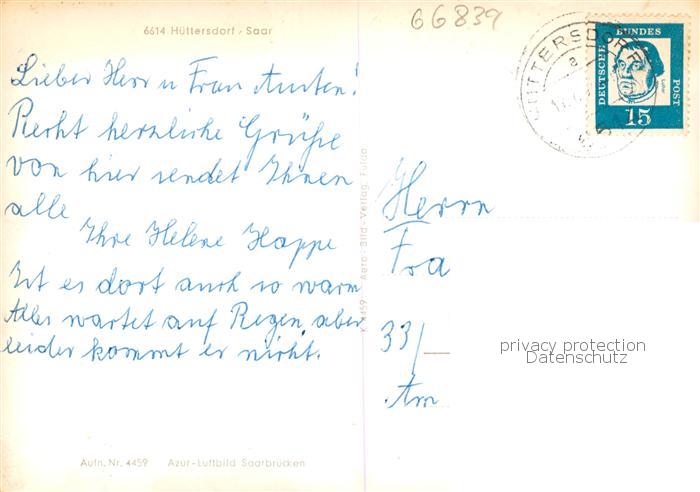 66839
6614 Hüttersdorf, Saar
Lieber Herr u Frau
Recht herzliche Grüße
von hier sendet Ihnen
alle
Ihre Helene Happe
Ist es dort auch so warm
Alles wartet auf Regen, aber
leider kommt er nicht.
Aufn. Nr. 4459 Azur-Luftbild Saarbrücken
K 4459 Aero-Bild-Verlag, Fulda
HÜTTERSDORF
a
DEUTSCHE BUNDESPOST
Luther
15
Herrn
Fra
33/
Am
privacy protection
Datenschutz